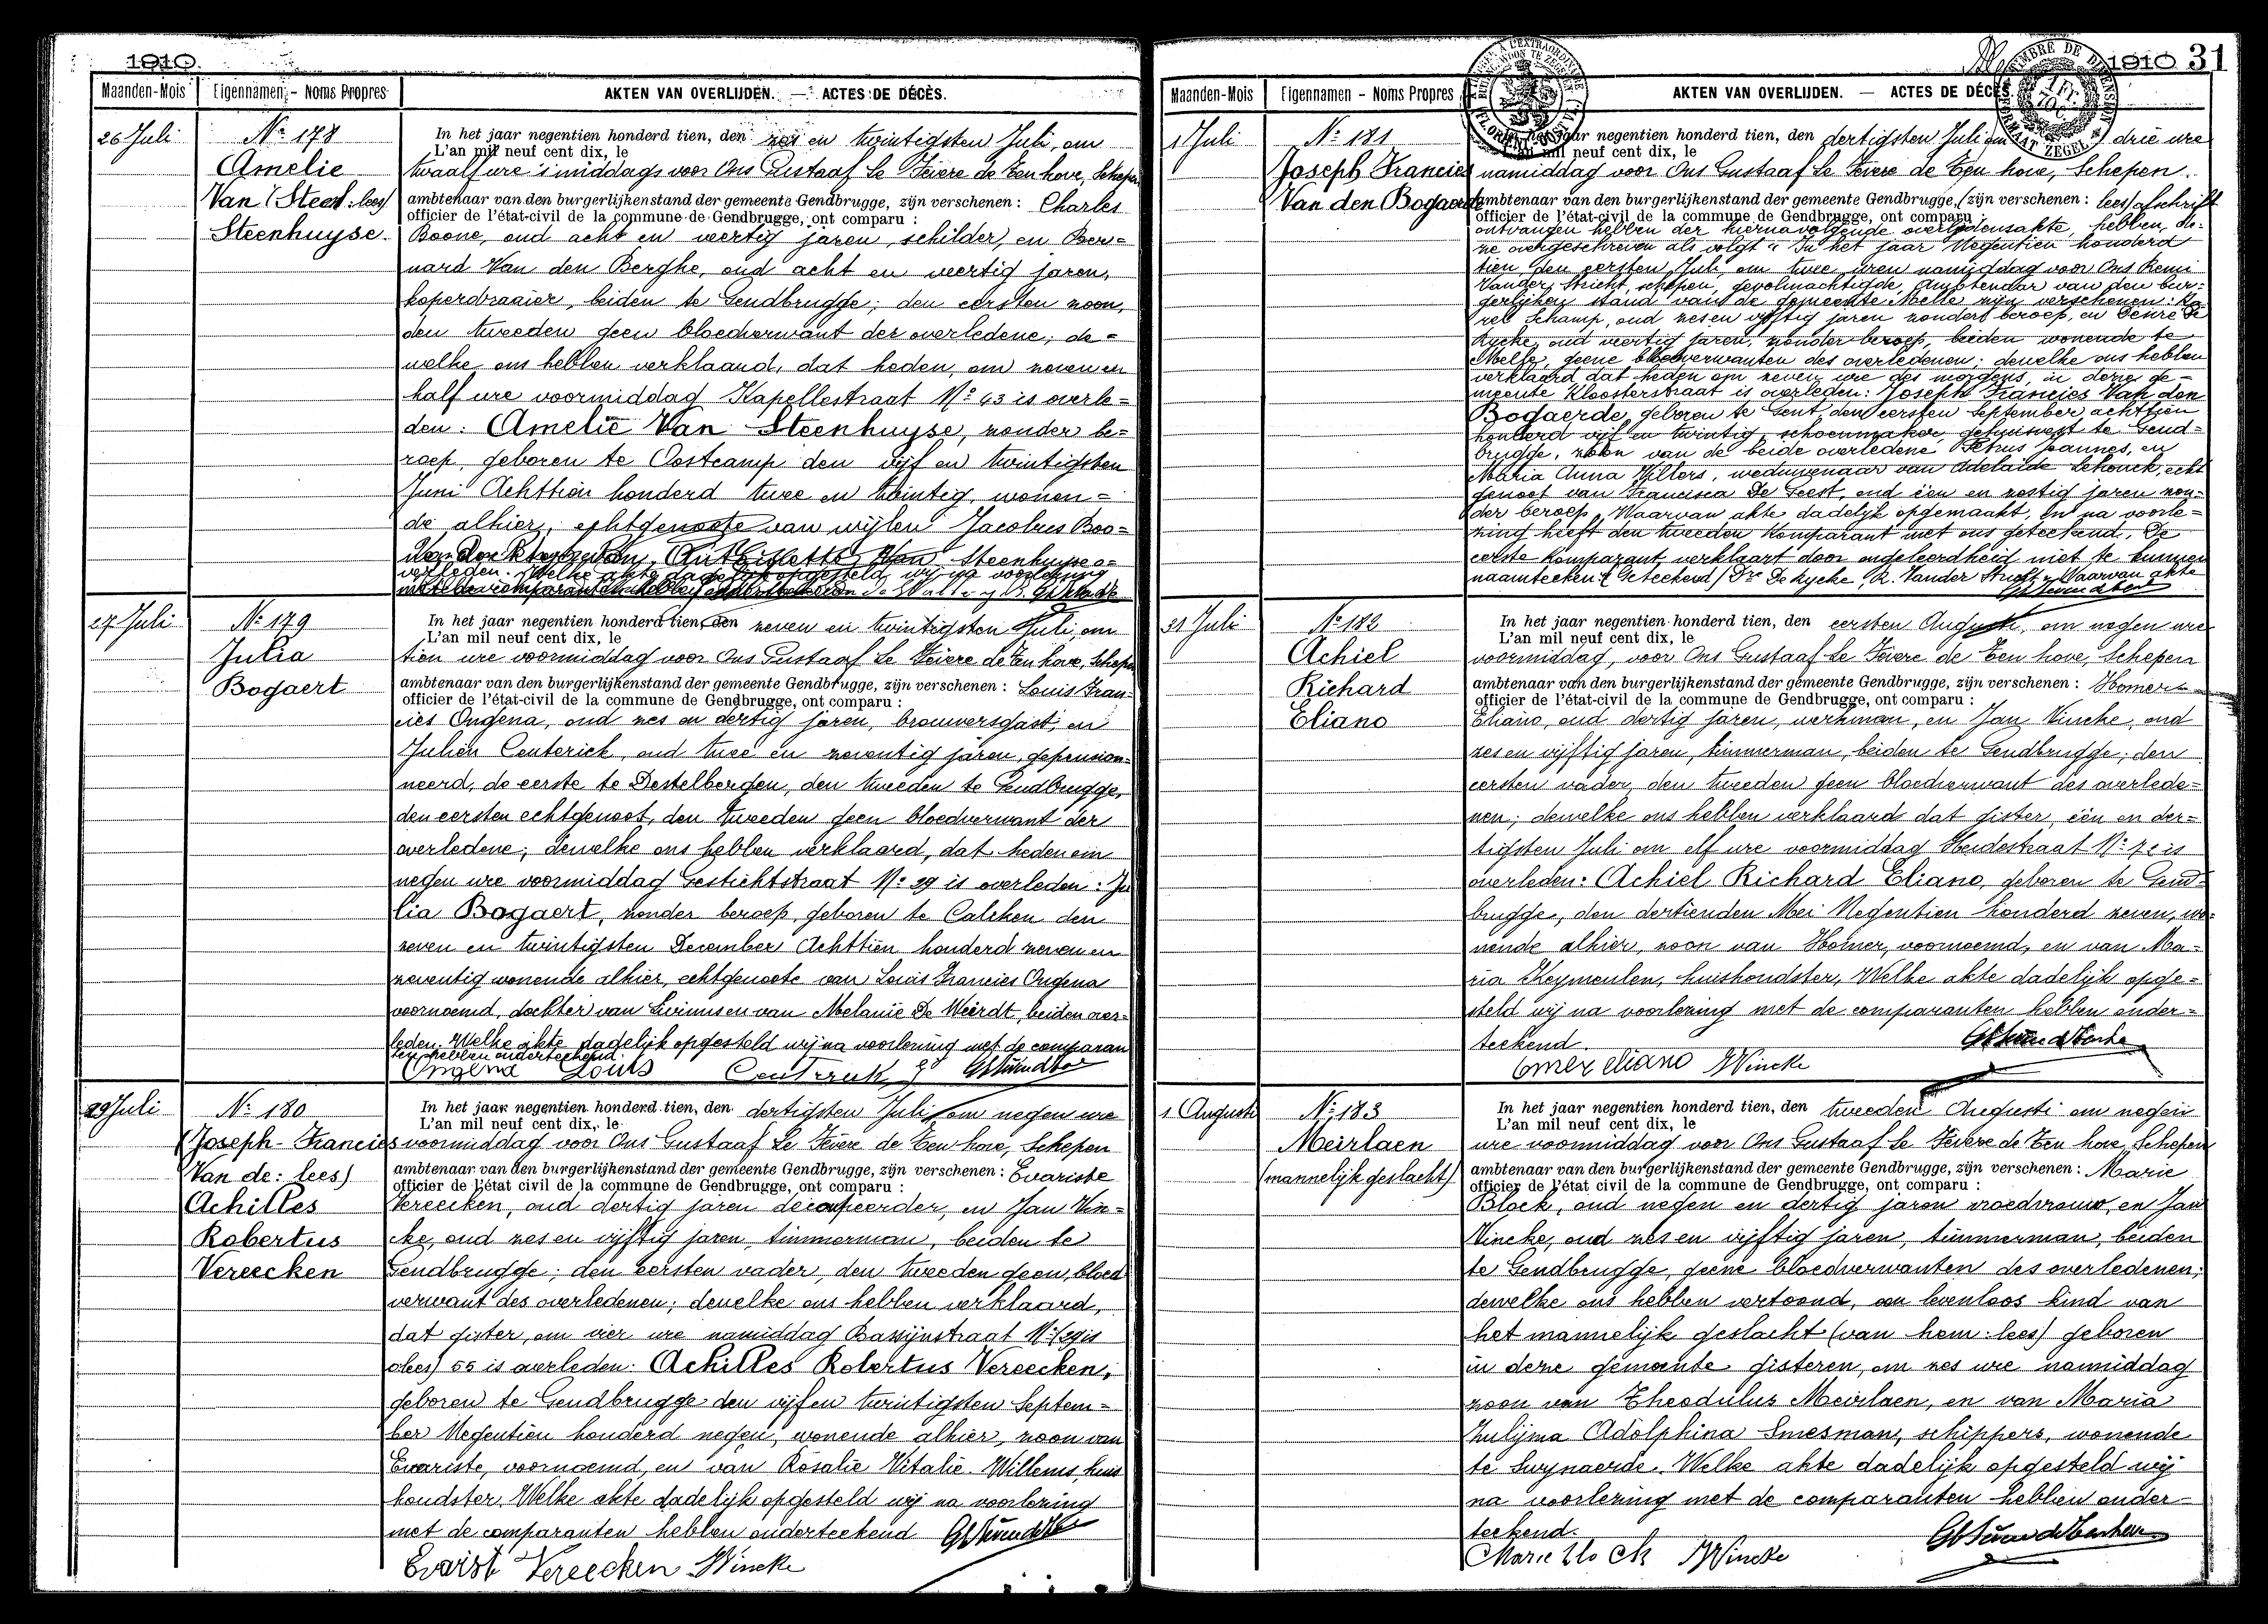 1910.
Maanden-Mois Eigennamen - Noms Propres AKTEN VAN OVERLIJDEN. — ACTES DE DÉCÈS.
26 Juli
Nº 178
Amelie
Van (Steen: lees)
Steenhuyse.
In het jaar negentien honderd tien, den zes en twintigsten Juli, om
L'an mil neuf cent dix, le
twaalf ure 's middags voor Ons Gustaaf Le Fevere de Ten hove, Schepen
ambtenaar van den burgerlijkenstand der gemeente Gendbrugge, zijn verschenen : Charles
officier de l'état-civil de la commune de Gendbrugge, ont comparu :
Boone, oud acht en veertig jaren, schilder, en Ber=
nard Van den Berghe, oud acht en veertig jaren,
koperdraaier, beiden te Gendbrugge; den eersten zoon,
den tweeden geen bloedverwant der overledene; de=
welke ons hebben verklaard, dat heden, om zeven en
half ure voormiddag Kapellestraat Nº 43 is overle=
den: Amelie Van Steenhuyse, zonder be=
roep, geboren te Oostcamp den vijf en twintigsten
Juni Achttien honderd twee en twintig, wonen=
de alhier, echtgenoote van wijlen Jacobus Boo=
Steenhuyse o=
verleden. Welke akte dadelijk opgesteld wij na voorlezing
27 Juli
Nº 179
Julia
Bogaert
In het jaar negentien honderd tien, den zeven en twintigsten Juli, om
L'an mil neuf cent dix, le
tien ure voormiddag voor Ons Gustaaf Le Fevere de Ten hove, Schepen
ambtenaar van den burgerlijkenstand der gemeente Gendbrugge, zijn verschenen : Louis Fran-
officier de l'état-civil de la commune de Gendbrugge, ont comparu :
cies Ongena, oud zes en dertig jaren, brouwersgast, en
Julien Centerick, oud twee en zeventig jaren, gepension-
neerd, de eerste te Destelbergen, den tweeden te Gendbrugge,
den eersten echtgenoot, den tweeden geen bloedverwant der
overledene; dewelke ons hebben verklaard, dat heden om
negen ure voormiddag Gestichtstraat Nº 29 is overleden: Ju
lia Bogaert, zonder beroep, geboren te Calcken den
zeven en twintigsten December Achttien honderd zeven en
zeventig wonende alhier, echtgenoote van Louis Francies Ongena
voornoemd, dochter van Livinus en van Melanie De Weirdt, beiden over=
leden. Welke akte dadelijk opgesteld wij na voorlezing met de comparan
ten hebben onderteekend.
Ongena Louis
29 Juli
Nº 180
(Joseph-Francies
Van de: lees)
Achilles
Robertus
Vereecken
In het jaar negentien honderd tien, den dertigsten Juli om negen ure
L'an mil neuf cent dix, le
voormiddag voor Ons Gustaaf Le Fevere de Ten hove, Schepen
ambtenaar van den burgerlijkenstand der gemeente Gendbrugge, zijn verschenen : Evariste
officier de l'état civil de la commune de Gendbrugge, ont comparu :
Vereecken, oud dertig jaren decoupeerder, en Jan Vin=
cke, oud zes en vijftig jaren, timmerman, beiden te
Gendbrugge; den eersten vader, den tweeden geen bloed
verwant des overledenen; dewelke ons hebben verklaard,
dat gister, om vier ure namiddag Bassijnstraat Nº (29 is
: lees) 55 is overleden: Achilles Robertus Vereecken,
geboren te Gendbrugge den vijf en twintigsten Septem=
ber Negentien honderd negen, wonende alhier, zoon van
Evariste, voornoemd, en van Rosalie Vitalie Willems, huis
houdster. Welke akte dadelijk opgesteld wij na voorlezing
met de comparanten hebben onderteekend
Evarist Vereecken JVincke
1910 31
Maanden-Mois Eigennamen - Noms Propres AKTEN VAN OVERLIJDEN. — ACTES DE DÉCÈS.
1 Juli
Nº 181
Joseph Francies
Van den Bogaerde
In het jaar negentien honderd tien, den dertigsten Juli om drie ure
L'an mil neuf cent dix, le
namiddag voor Ons Gustaaf Le Fevere de Ten hove, Schepen.
ambtenaar van den burgerlijkenstand der gemeente Gendbrugge, (zijn verschenen : lees) afschrift
officier de l'état-civil de la commune de Gendbrugge, ont comparu :
ontvangen hebben der hiernavolgende overlijdensakte, hebben de-
ze overgeschreven als volgt: "In het jaar Negentien honderd
tien, den eersten Juli, om twee uren namiddag voor Ons Remi
Vander Stricht, schepen, gevolmachtigde, Ambtenaar van den bur-
gerlijken stand van de gemeente Melle zijn verschenen: Ka-
rel Schamp, oud zes en vijftig jaren zonder beroep, en Desiré De
Rycke, oud veertig jaren, zonder beroep, beiden wonende te
Melle, geene bloedverwanten des overledenen; dewelke ons hebben
verklaard dat heden om zeven ure des morgens, in deze ge-
meente Kloosterstraat is overleden: Joseph Francies Van den
Bogaerde, geboren te Gent, den eersten September achttien
honderd vijf en twintig, schoenmaker, gehuisvest te Gend=
brugge, zoon van de beide overledene Petrus Joannes, en
Maria Anna Willers, weduwenaar van Adelaide Schouck, echt
genoot van Francisca De Geest, oud één en zestig jaren zon-
der beroep. Waarvan akte dadelijk opgemaakt, en na voorle=
zing heeft den tweeden komparant met ons geteekend. De
eerste komparant verklaart door ongeleerdheid niet te kunnen
naamteeken (Geteekend) Dré De Rycke, R. Vander Stricht. Waarvan akte
31 Juli
Nº 182
Achiel
Richard
Eliano
In het jaar negentien honderd tien, den eersten Augusti, om negen ure
L'an mil neuf cent dix, le
voormiddag, voor Ons Gustaaf Le Fevere de Ten hove, Schepen
ambtenaar van den burgerlijkenstand der gemeente Gendbrugge, zijn verschenen : Homer
officier de l'état-civil de la commune de Gendbrugge, ont comparu :
Eliano, oud dertig jaren, werkman, en Jan Vincke, oud
zes en vijftig jaren, timmerman, beiden te Gendbrugge; den
eersten vader, den tweeden geen bloedverwant des overlede=
nen; dewelke ons hebben verklaard dat gister, één en der=
tigsten Juli om elf ure voormiddag Heidestraat Nº is
overleden: Achiel Richard Eliano, geboren te Gend=
brugge, den dertienden Mei Negentien honderd zeven, wo-
nende alhier, zoon van Homer, voornoemd, en van Ma=
ria Heymeulen, huishoudster, Welke akte dadelijk opge=
steld wij na voorlezing met de comparanten hebben onder=
teekend.
Omer eliano JVincke
1 Augusti
Nº 183
Meirlaen
(mannelijk geslacht)
In het jaar negentien honderd tien, den tweeden Augusti om negen
L'an mil neuf cent dix, le
ure voormiddag voor Ons Gustaaf Le Fevere de Ten hove, Schepen
ambtenaar van den burgerlijkenstand der gemeente Gendbrugge, zijn verschenen : Marie
officier de l'état civil de la commune de Gendbrugge, ont comparu :
Block, oud negen en dertig jaren vroedvrouw, en Jan
Vincke, oud zes en vijftig jaren, timmerman, beiden
te Gendbrugge, geene bloedverwanten des overledenen;
dewelke ons hebben vertoond, een levenloos kind van
het mannelijk geslacht (van hem: lees) geboren
in deze gemeente gisteren, om zes ure namiddag
zoon van Theodulus Meirlaen, en van Maria
Zulijma Adolphina Smesman, schippers, wonende
te Swynaerde. Welke akte dadelijk opgesteld wij
na voorlezing met de comparanten hebben onder=
teekend.
Marie Block JVincke